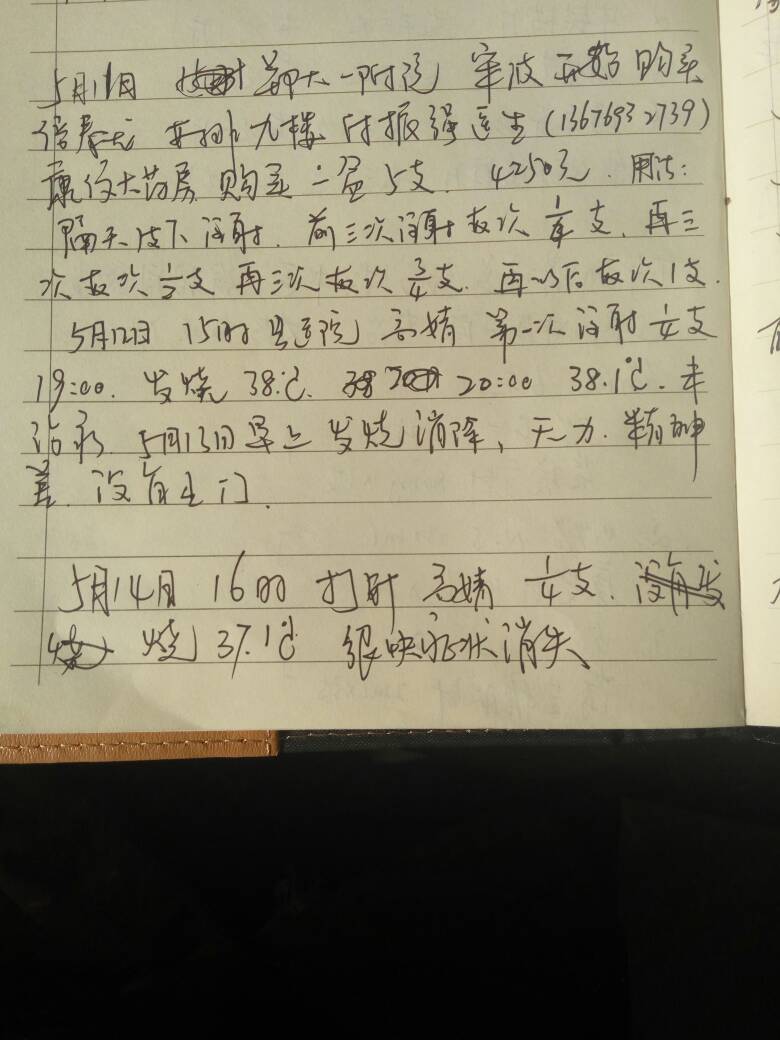 5月11日 郑大一附院 宋波 开药 购买
倍泰龙 开封 九楼 付振强医生(13676932739)
康复大药房 购买 一盒 5支. 4250元. 用法:
隔天皮下注射. 前三次注射每次1/4支. 再三
次每次1/2支 再三次每次3/4支. 再以后每次1支.
5月12日 15时 县医院 高婧 第一次注射1/4支
19:00. 发烧38℃. 20:00 38.1℃. 未
治疗. 5月13日早上发烧消降、无力. 精神
差. 没有出门.
5月14日 16时 打针 高婧 1/4支. 没有发
烧 烧 37.1℃ 很快症状消失